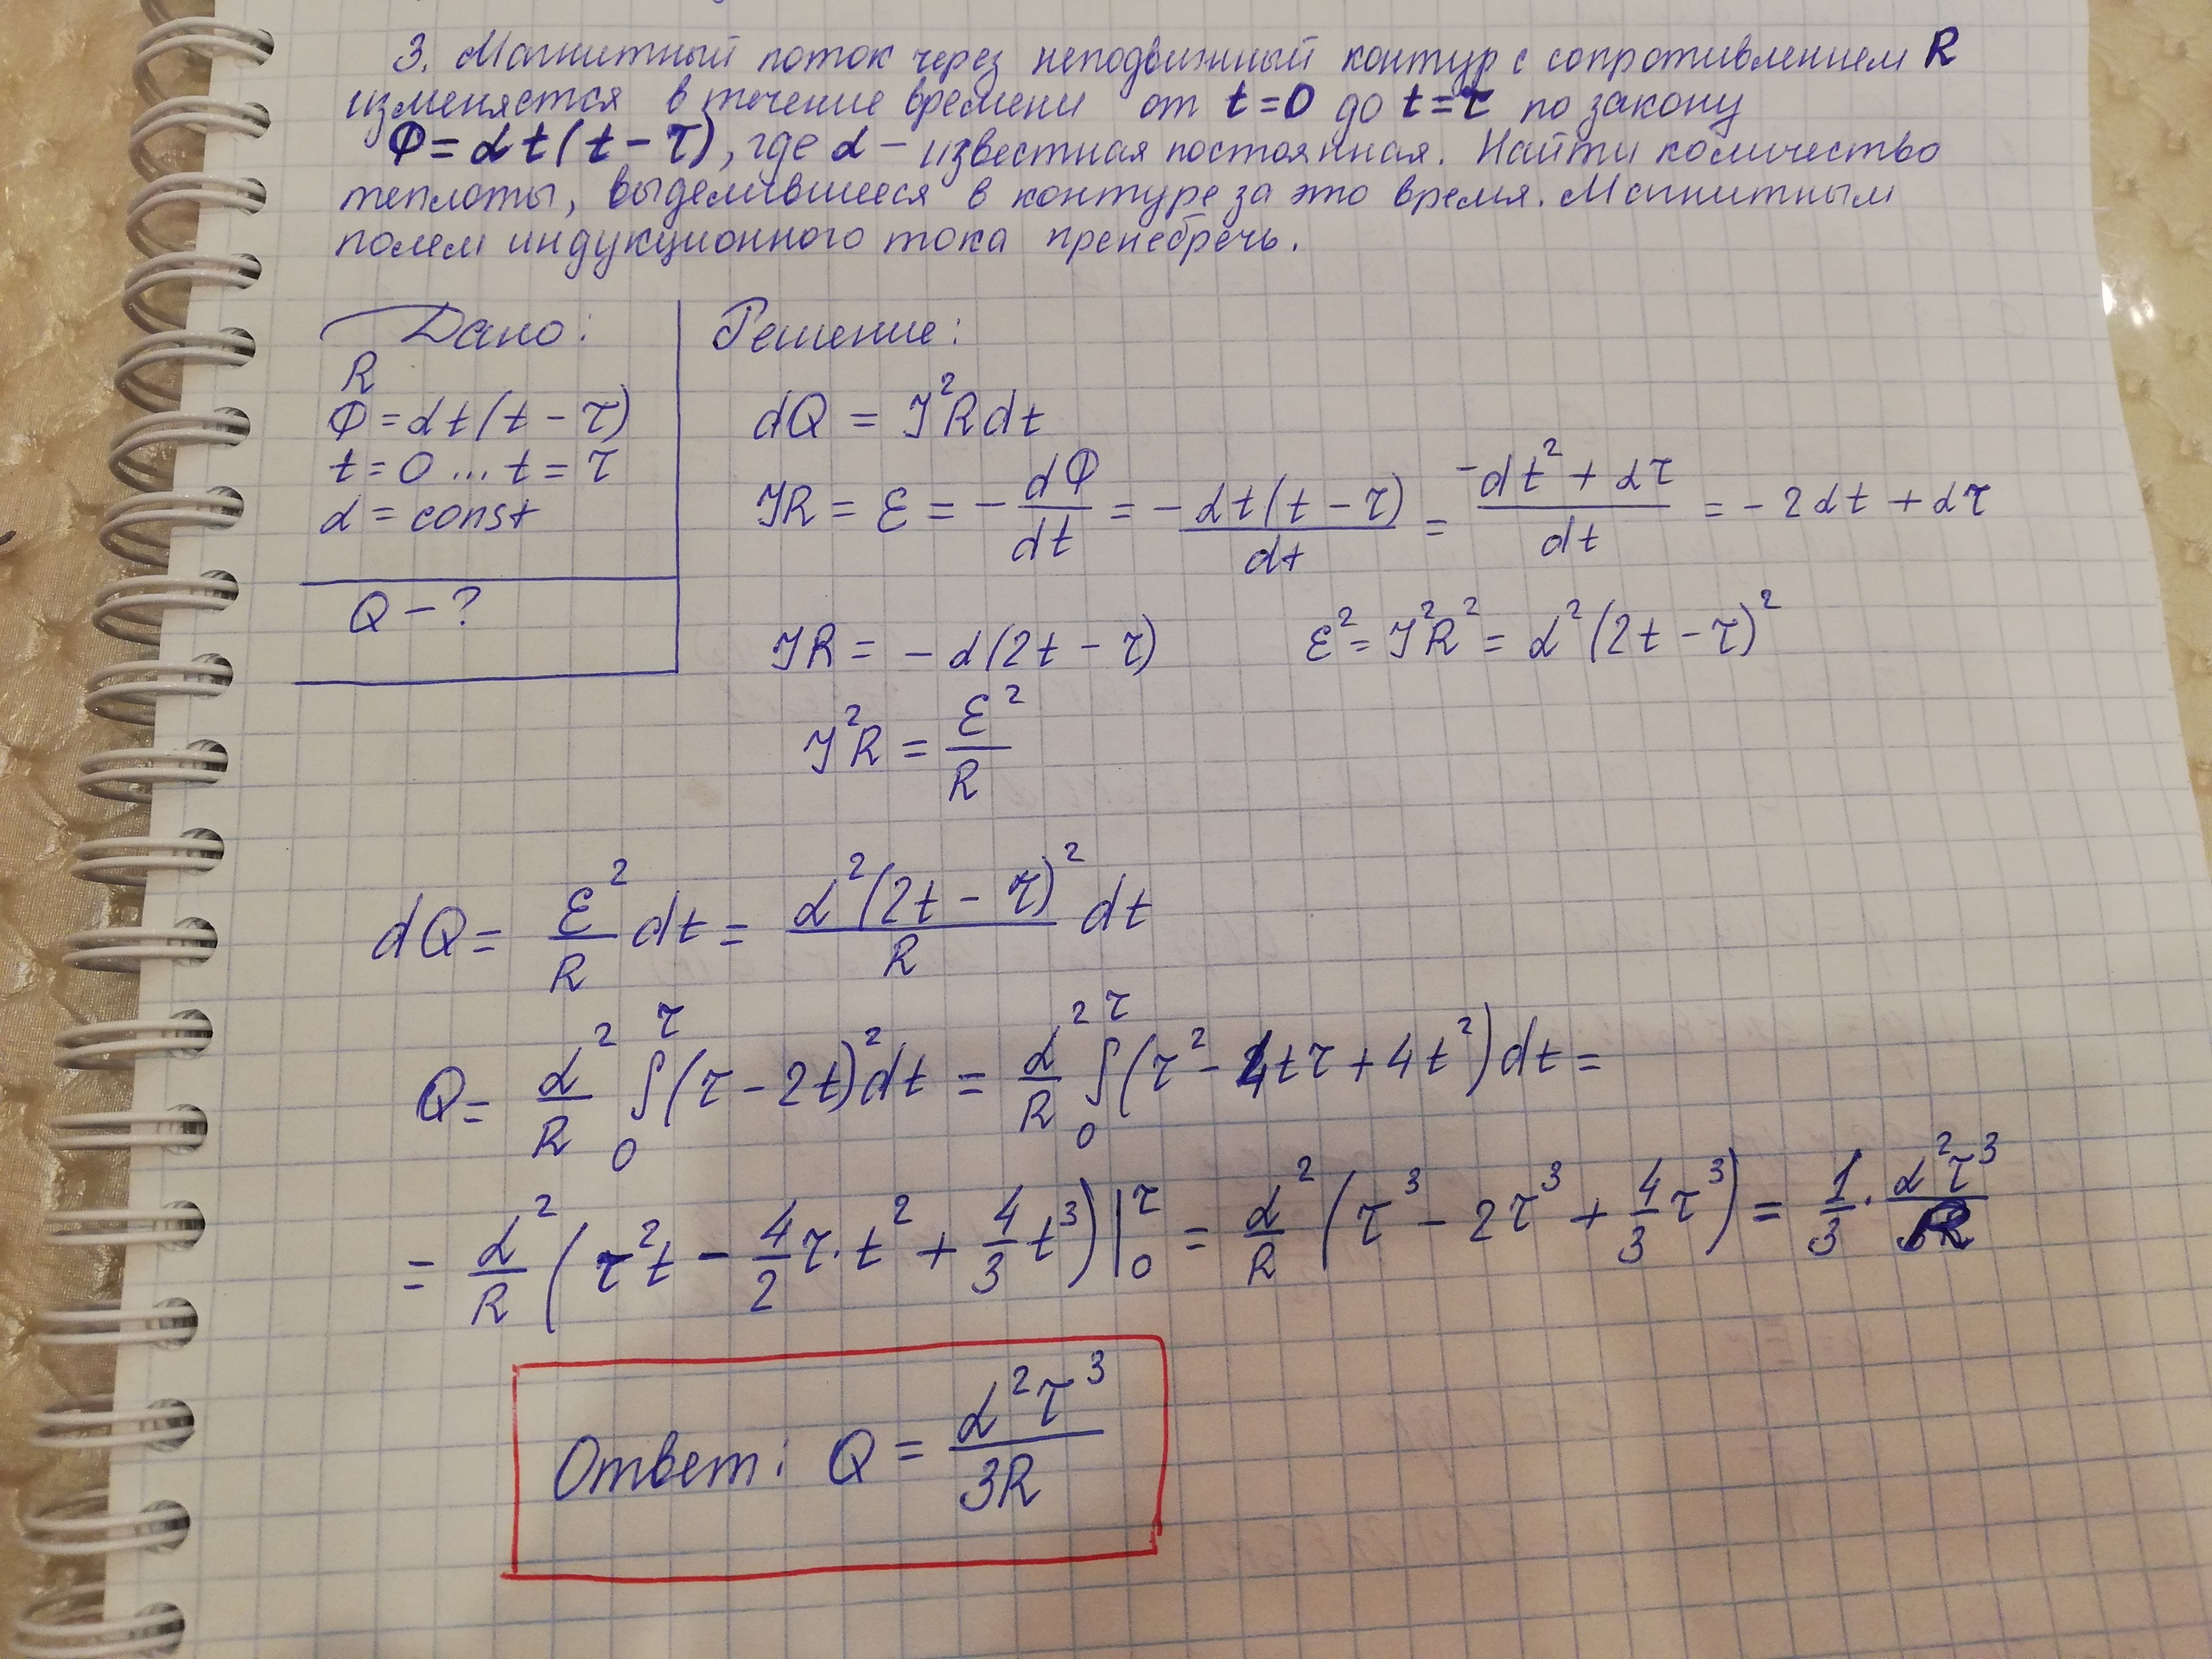 3. Магнитный поток через неподвижный контур с сопротивлением R
изменяется в течение времени от t=0 до t=τ по закону
Ф=αt(t-τ), где α – известная постоянная. Найти количество
теплоты, выделившееся в контуре за это время. Магнитным
полем индукционного тока пренебречь.
Дано:
R
Ф=αt(t-τ)
t=0...t=τ
α=const
Q-?
Решение:
dQ = J²Rdt
JR = ε = - dФ/dt = - αt(t-τ)/dt = (-αt²+ατ)/dt = -2αt+ατ
JR = -α(2t-τ) ε²=J²R²=α²(2t-τ)²
J²R = ε²/R
dQ = ε²/R dt = α²(2t-τ)²/R dt
Q = α²/R ∫₀^τ (τ-2t)²dt = α²/R ∫₀^τ (τ²-4tτ+4t²)dt =
= α²/R (τ²t - 4/2 τ·t² + 4/3 t³)|₀^τ = α²/R (τ³-2τ³+4/3 τ³) = 1/3 · α²τ³/R
Ответ: Q = α²τ³/3R